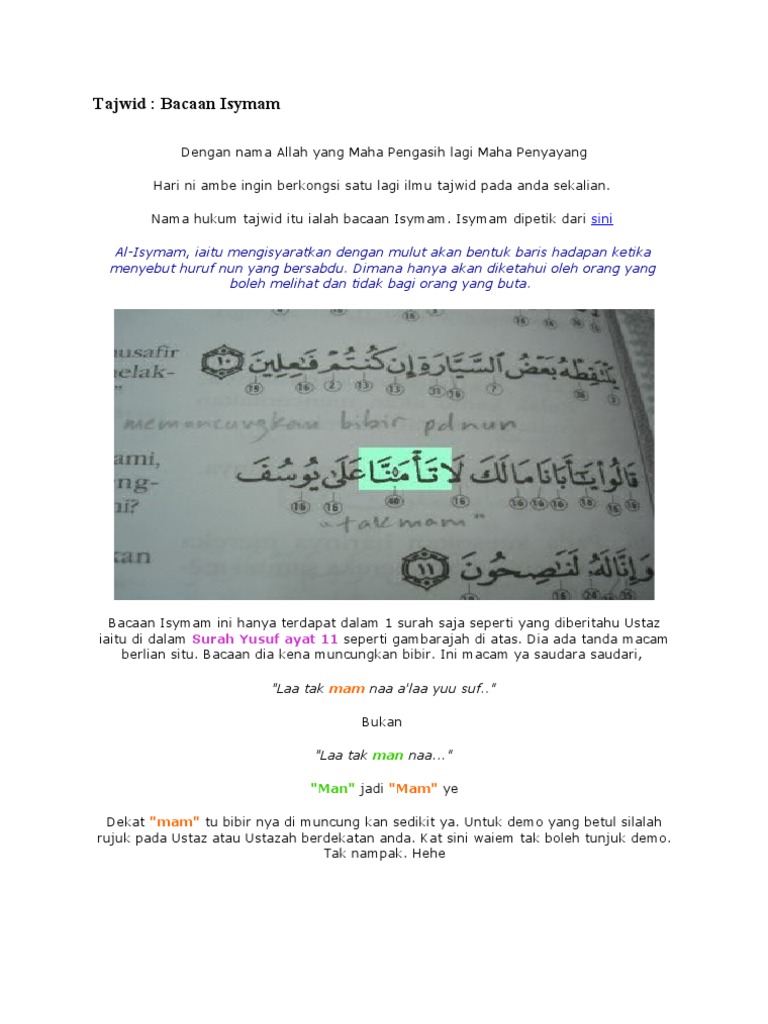 Tajwid : Bacaan Isymam
Dengan nama Allah yang Maha Pengasih lagi Maha Penyayang
Hari ni ambe ingin berkongsi satu lagi ilmu tajwid pada anda sekalian.
Nama hukum tajwid itu ialah bacaan Isymam. Isymam dipetik dari sini
Al-Isymam, iaitu mengisyaratkan dengan mulut akan bentuk baris hadapan ketika
menyebut huruf nun yang bersabdu. Dimana hanya akan diketahui oleh orang yang
boleh melihat dan tidak bagi orang yang buta.
usafir
يَلْتَقِطْهُ بَعْضُ السَّيَّارَةِ إِن كُنتُمْ فَاعِلِينَ ١٠
elak-
memuncungkan bibir pd nun
ami,
قَالُوا يَا أَبَانَا مَالَكَ لَا تَأْمَنَّا عَلَىٰ يُوسُفَ
ng-
ni?
"takmam"
وَإِنَّا لَهُ لَنَاصِحُونَ ١١
kan
Bacaan Isymam ini hanya terdapat dalam 1 surah saja seperti yang diberitahu Ustaz
iaitu di dalam Surah Yusuf ayat 11 seperti gambarajah di atas. Dia ada tanda macam
berlian situ. Bacaan dia kena muncungkan bibir. Ini macam ya saudara saudari,
"Laa tak mam naa a'laa yuu suf.."
Bukan
"Laa tak man naa..."
"Man" jadi "Mam" ye
Dekat "mam" tu bibir nya di muncung kan sedikit ya. Untuk demo yang betul silalah
rujuk pada Ustaz atau Ustazah berdekatan anda. Kat sini waiem tak boleh tunjuk demo.
Tak nampak. Hehe